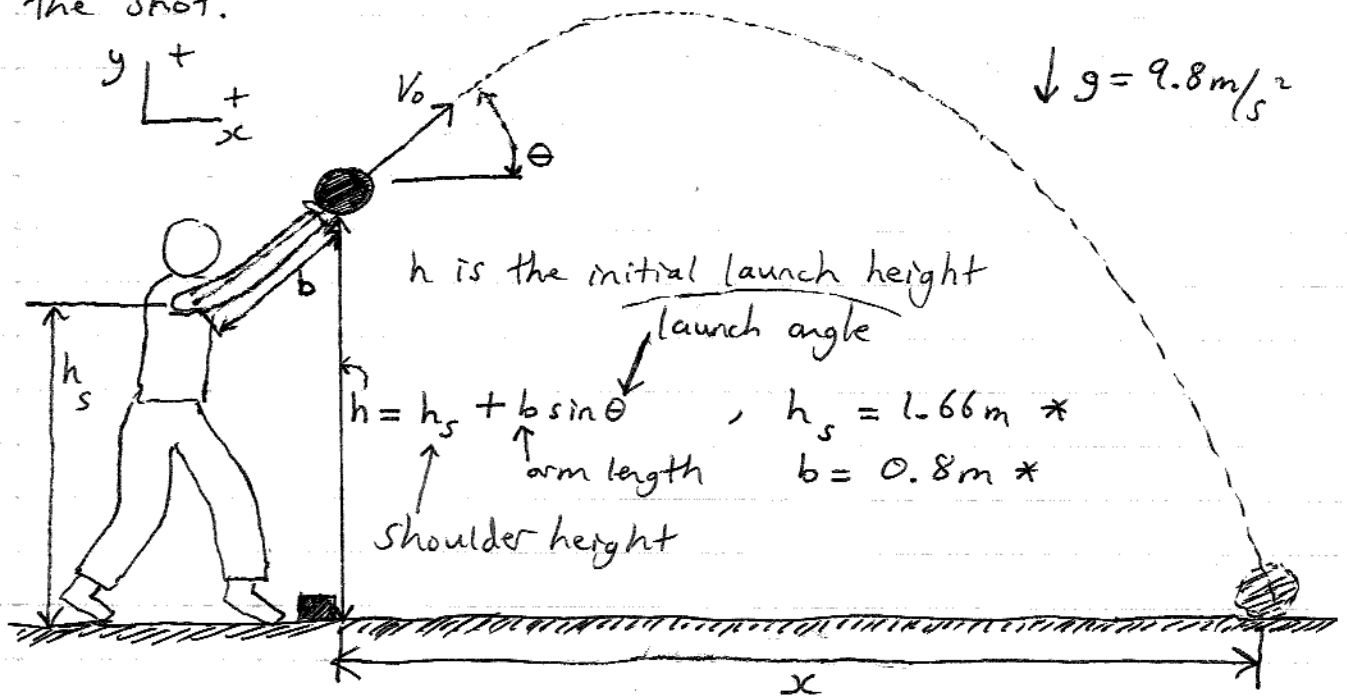 The shot.
y +
+
x
V₀
θ
↓ g = 9.8 m/s²
b
h is the initial launch height
launch angle
h = hₛ + b sin θ , hₛ = 1.66m *
arm length b = 0.8m *
shoulder height
hₛ
x